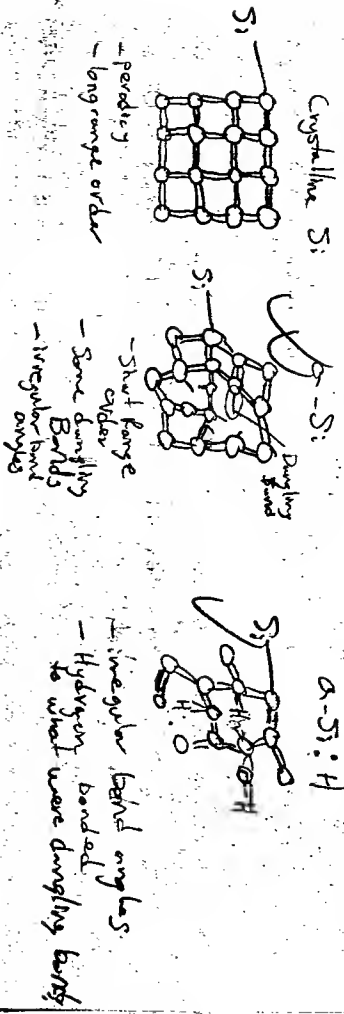 Crystalline Si
Si
- perodicy
- long range order
a-Si
Si
Dangling
Bond
- Short Range
order
- Some dangling
Bonds
- irregular bond
angles
a-Si:H
Si
H
H
H
- irregular bond angles
- Hydrogen bonded
to what were dangling bonds